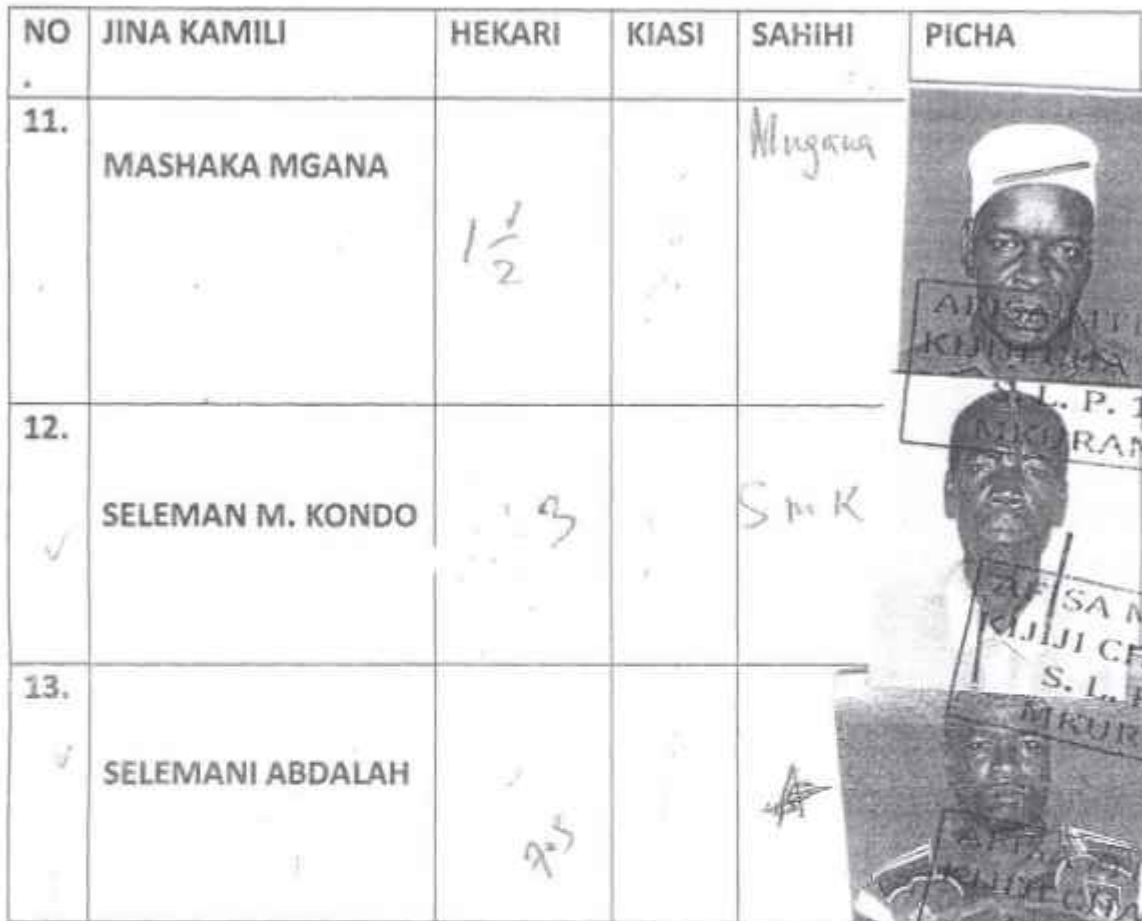 NO. JINA KAMILI HEKARI KIASI SAHIHI PICHA
11. MASHAKA MGANA 1 1/2 Mngana
AFISA MT
KIJIJI CHA
S. L. P. 1
MKURAN
12. SELEMAN M. KONDO 3 S m K
AFISA M
KIJIJI CH
S. L. P
MKUR
13. SELEMANI ABDALAH
KIJIJI CHA